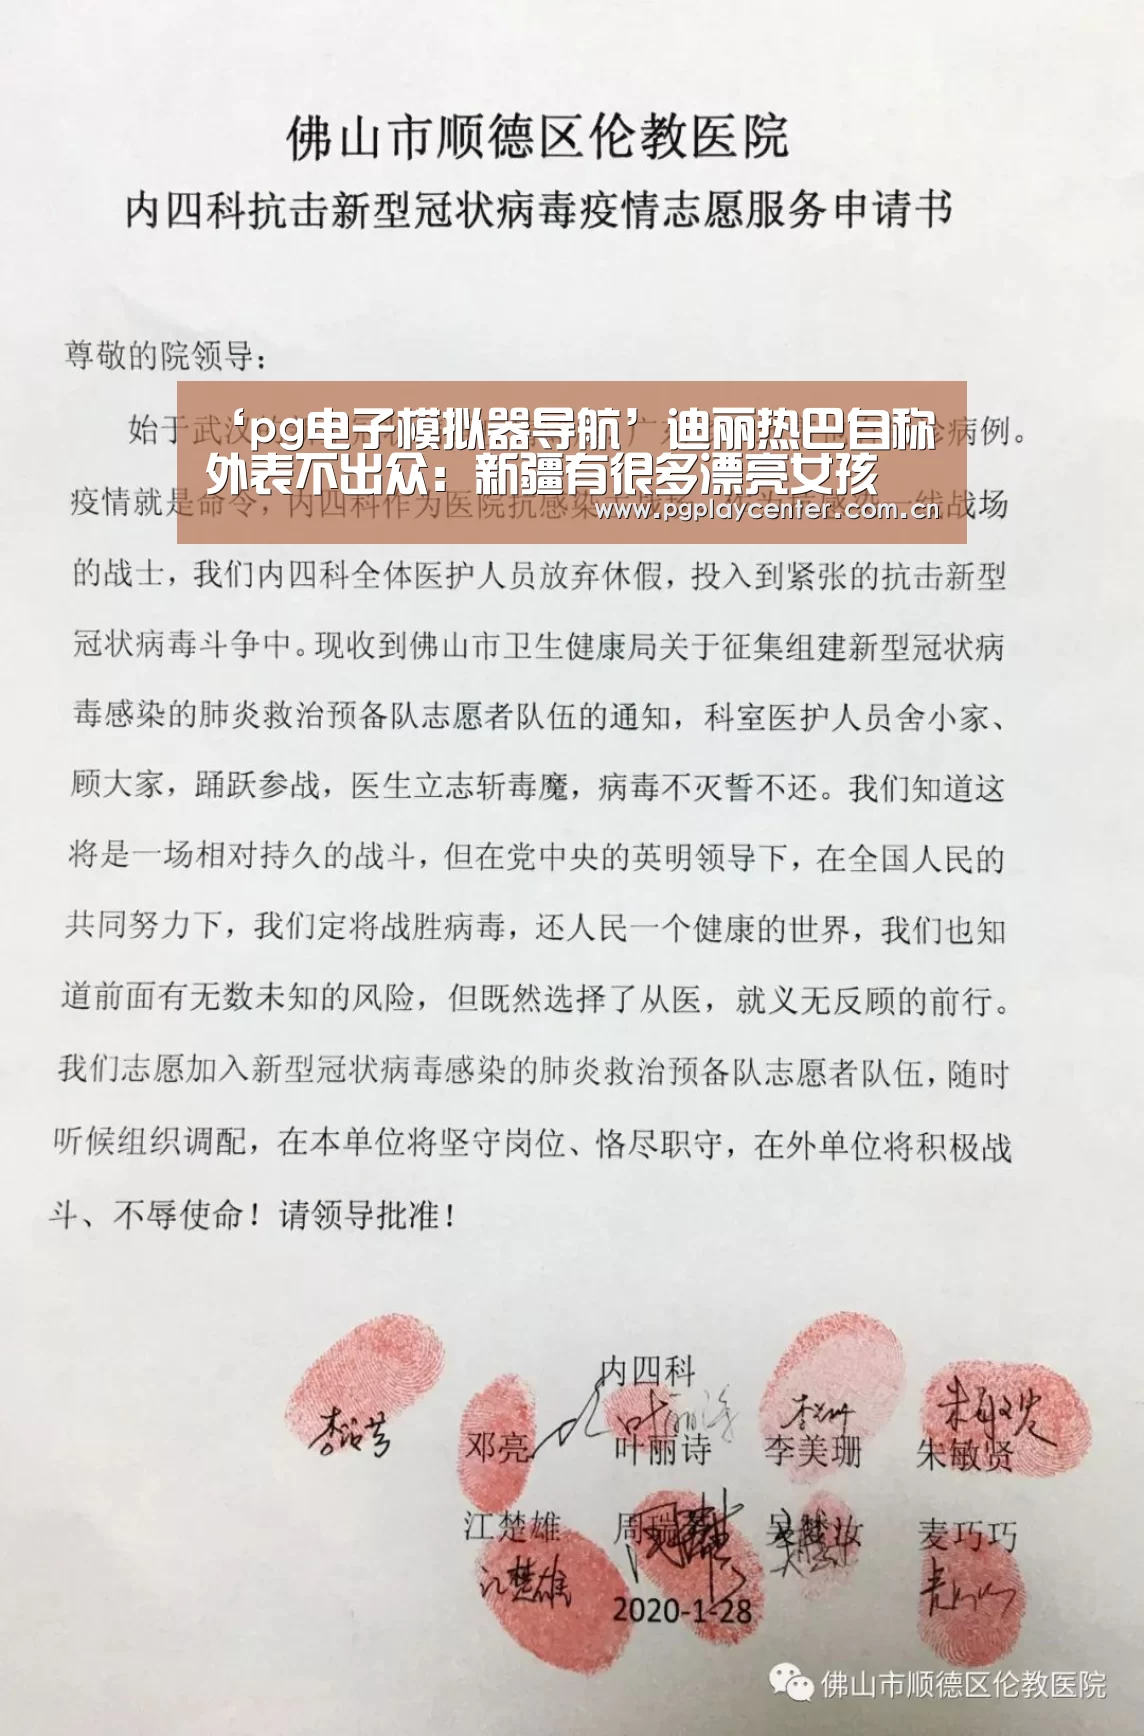 佛山市顺德区伦教医院
内四科抗击新型冠状病毒疫情志愿服务申请书
尊敬的院领导:
‘pg电子模拟器导航’迪丽热巴自称
外表不出众:新疆有很多漂亮女孩
www.pgplaycenter.com.cn
始于武汉 病例。
疫情就是命令,内四科作为医院抗感染 一线战场
的战士,我们内四科全体医护人员放弃休假,投入到紧张的抗击新型
冠状病毒斗争中。现收到佛山市卫生健康局关于征集组建新型冠状病
毒感染的肺炎救治预备队志愿者队伍的通知,科室医护人员舍小家、
顾大家,踊跃参战,医生立志斩毒魔,病毒不灭誓不还。我们知道这
将是一场相对持久的战斗,但在党中央的英明领导下,在全国人民的
共同努力下,我们定将战胜病毒,还人民一个健康的世界,我们也知
道前面有无数未知的风险,但既然选择了从医,就义无反顾的前行。
我们志愿加入新型冠状病毒感染的肺炎救治预备队志愿者队伍,随时
听候组织调配,在本单位将坚守岗位、恪尽职守,在外单位将积极战
斗、不辱使命!请领导批准!
内四科
邓亮 叶丽诗 李美珊 朱敏贤
江楚雄 周瑞 妆 麦巧巧
江楚雄
2020-1-28
佛山市顺德区伦教医院